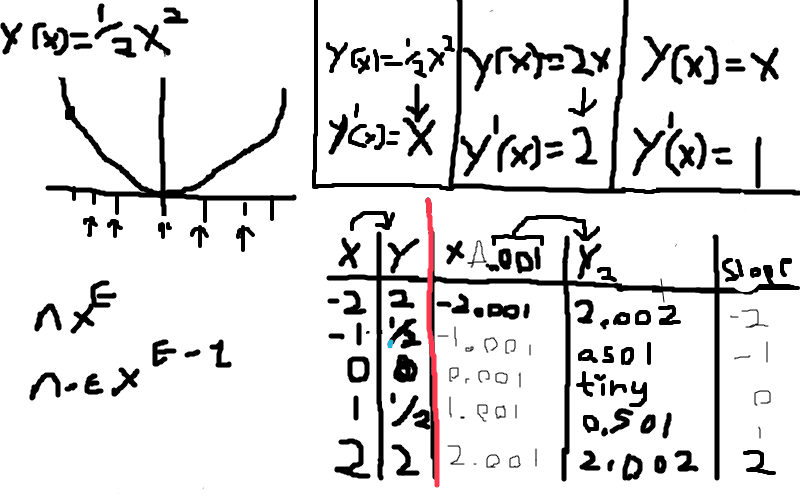 Y(x)=1/2x²
Y(x)=1/2x²
Y'(x)=x
y(x)=2x
y'(x)=2
y(x)=x
y'(x)=1
nx^E
n·E·x^E-1
x Y x .001 Y₂ Slope
-2 2 -2.001 2.002 -2
-1 1/2 -1.001 0.501 -1
0 0 0.001 tiny 0
1 1/2 1.001 0.501 1
2 2 2.001 2.002 2